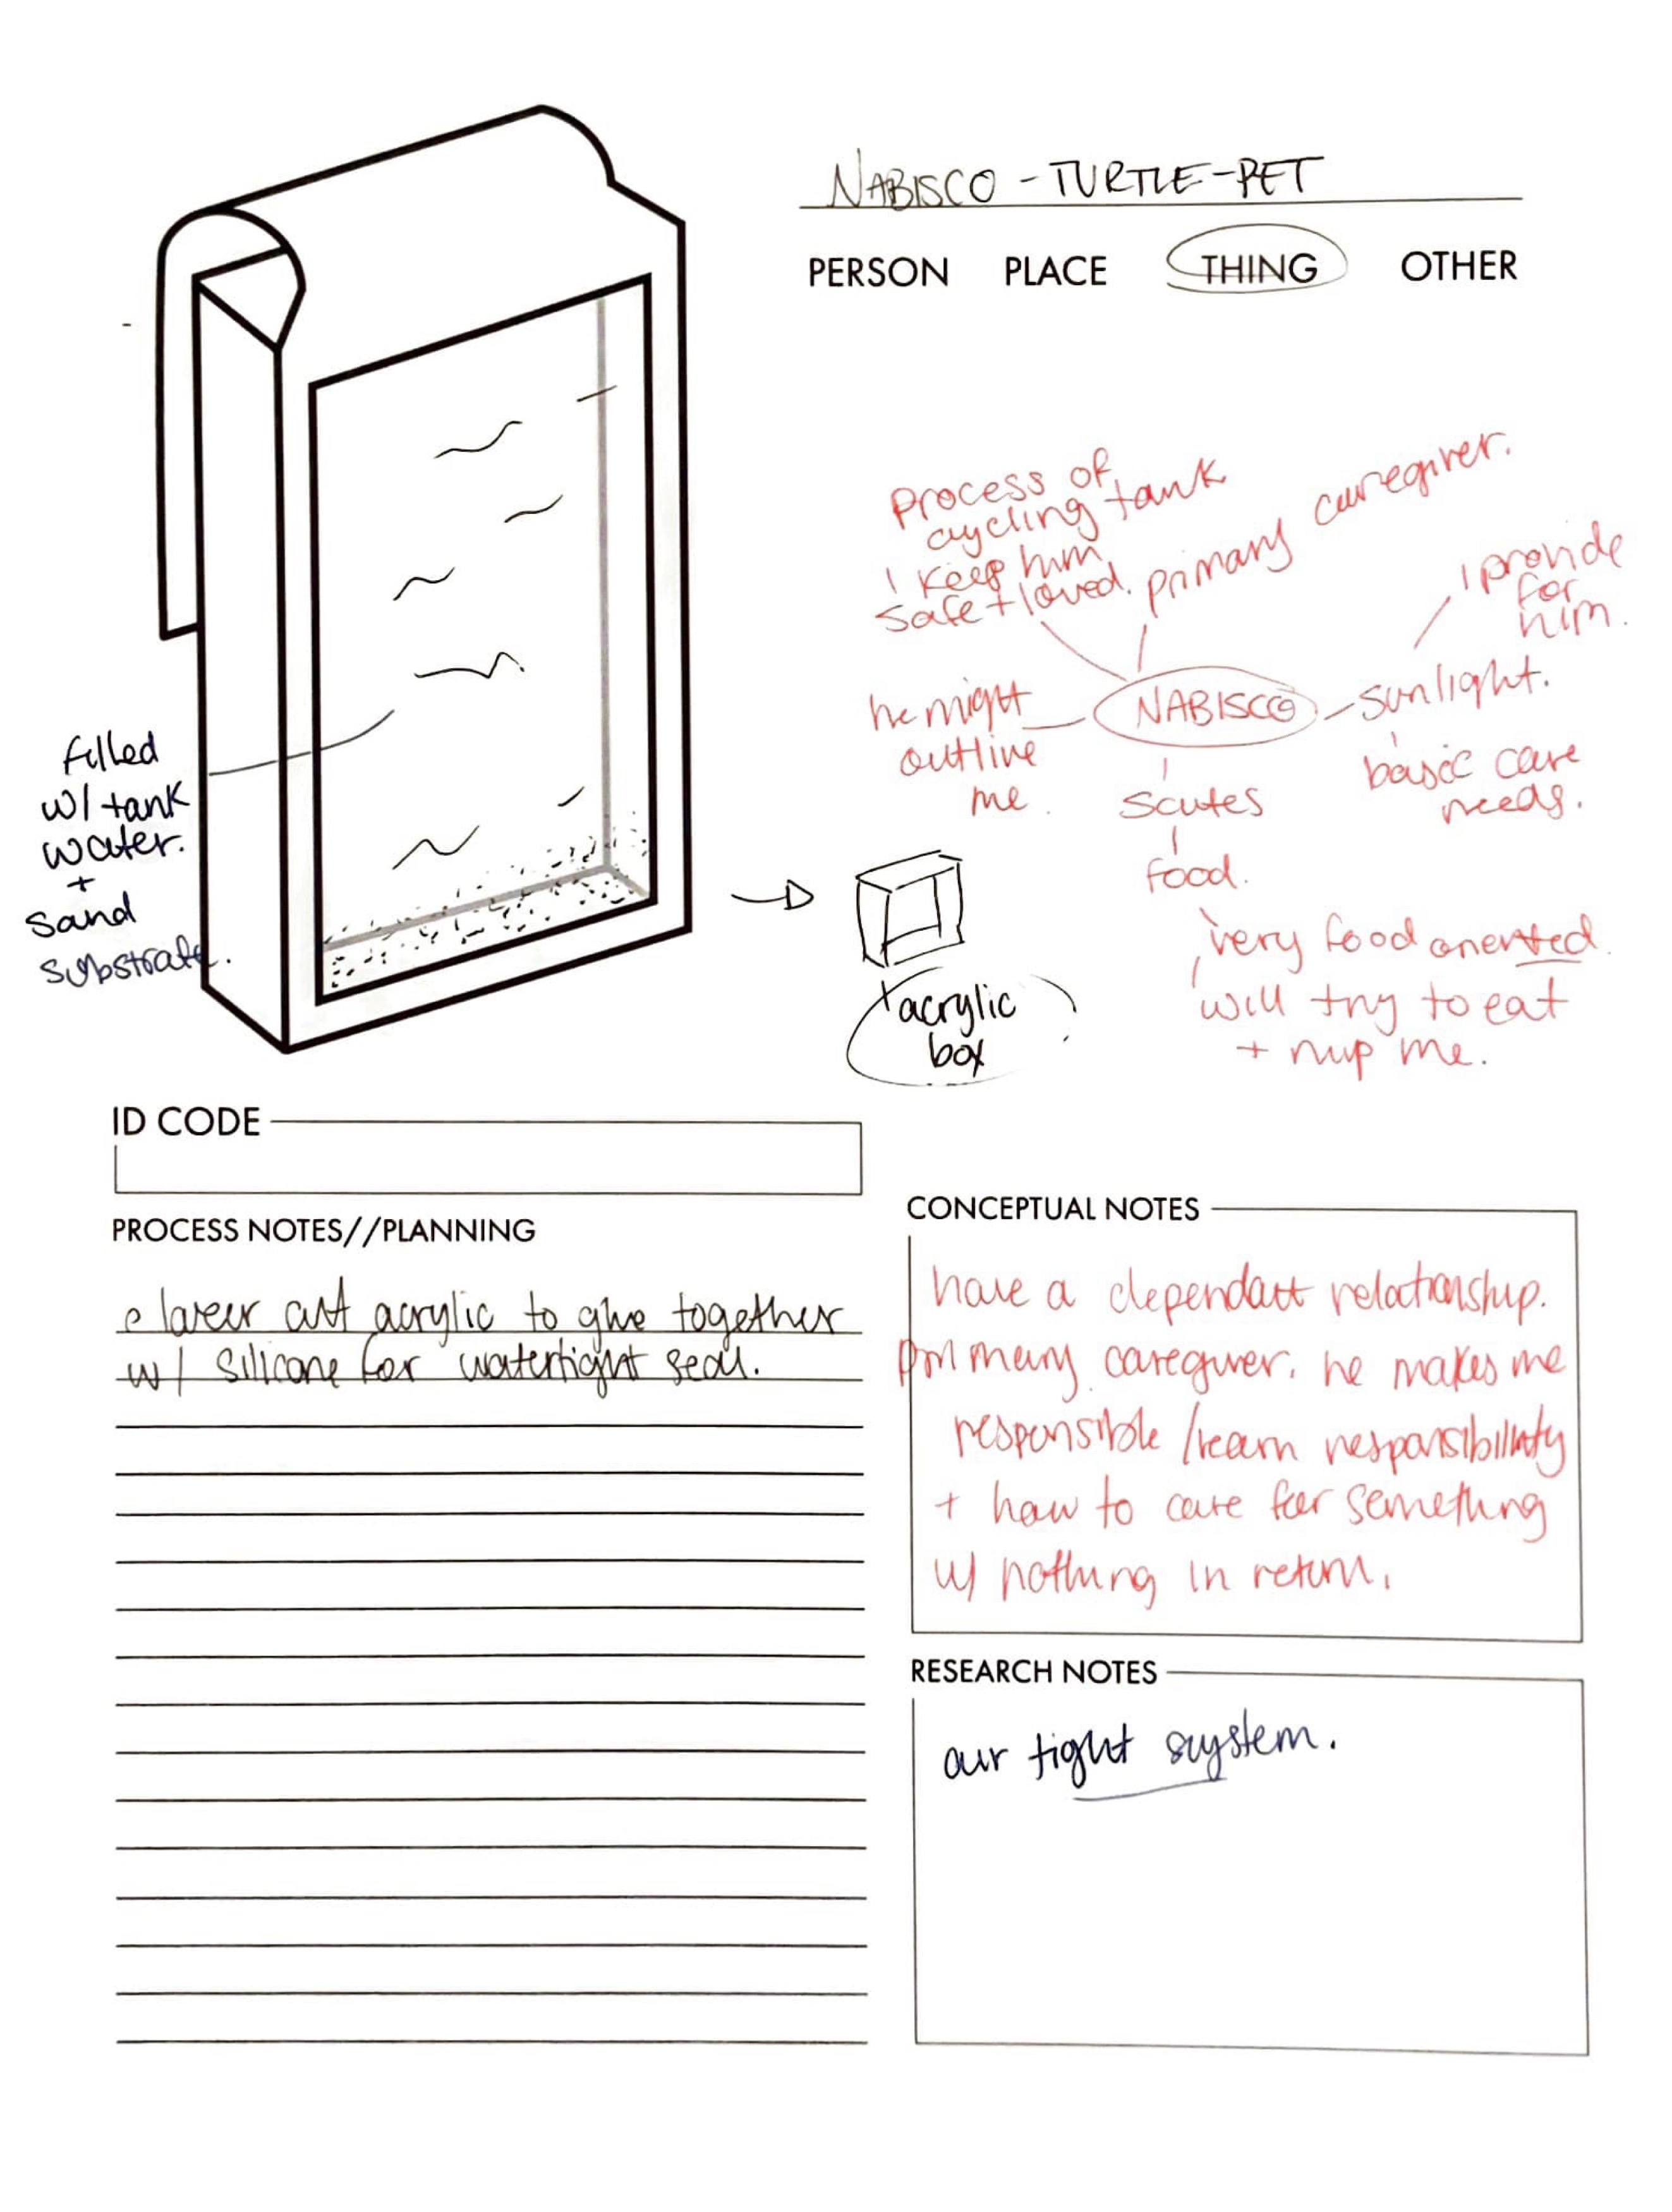 NABISCO - TURTLE - PET
PERSON PLACE THING OTHER
Process of
cycling tank
I keep him
safe + loved.
primary caregiver.
I provide
for
him.
he might
outlive
me.
NABISCO
sunlight.
basic care
needs.
scutes
food.
very food oriented.
will try to eat
+ nip me.
filled
w/ tank
water.
+
sand
substrate.
acrylic
box
ID CODE
PROCESS NOTES//PLANNING
laser cut acrylic to glue together
w/ silicone for watertight seal.
CONCEPTUAL NOTES
have a dependant relationship.
primary caregiver. he makes me
responsible / learn responsibility
+ how to care for something
w/ nothing in return.
RESEARCH NOTES
our tight system.